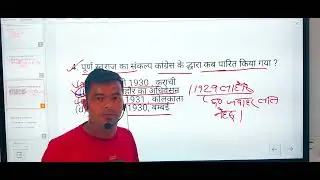 4. पूर्ण स्वराज का संकल्प कांग्रेस के द्वारा कब पारित किया गया ?
1930, कराची
का अधिवेसन
1931, कोलकाता
(d) 1930, बम्बई
1929 लाहौर
जवाहर लाल
नेहरू